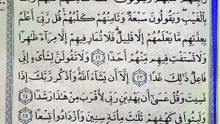 بِٱلْغَيْبِ وَيَقُولُونَ سَبْعَةٌ وَثَامِنُهُمْ كَلْبُهُمْ قُل رَّبِّىٓ أَعْلَمُ
بِعِدَّتِهِم مَّا يَعْلَمُهُمْ إِلَّا قَلِيلٌ فَلَا تُمَارِ فِيهِمْ إِلَّا مِرَآءً ظَٰهِرًا
وَلَا تَسْتَفْتِ فِيهِم مِّنْهُمْ أَحَدًا ٢٢ وَلَا تَقُولَنَّ لِشَا۟ىْءٍ إِنِّى
فَاعِلٌ ذَٰلِكَ غَدًا ٢٣ إِلَّآ أَن يَشَآءَ ٱللَّهُ وَٱذْكُر رَّبَّكَ إِذَا
نَسِيتَ وَقُلْ عَسَىٰٓ أَن يَهْدِيَنِ رَبِّى لِأَقْرَبَ مِنْ هَٰذَا رَشَدًا ٢٤
وَلَبِثُوا۟ فِى كَهْفِهِمْ ثَلَٰثَ مِا۟ئَةٍ سِنِينَ وَٱزْدَادُوا۟ تِسْعًا ٢٥